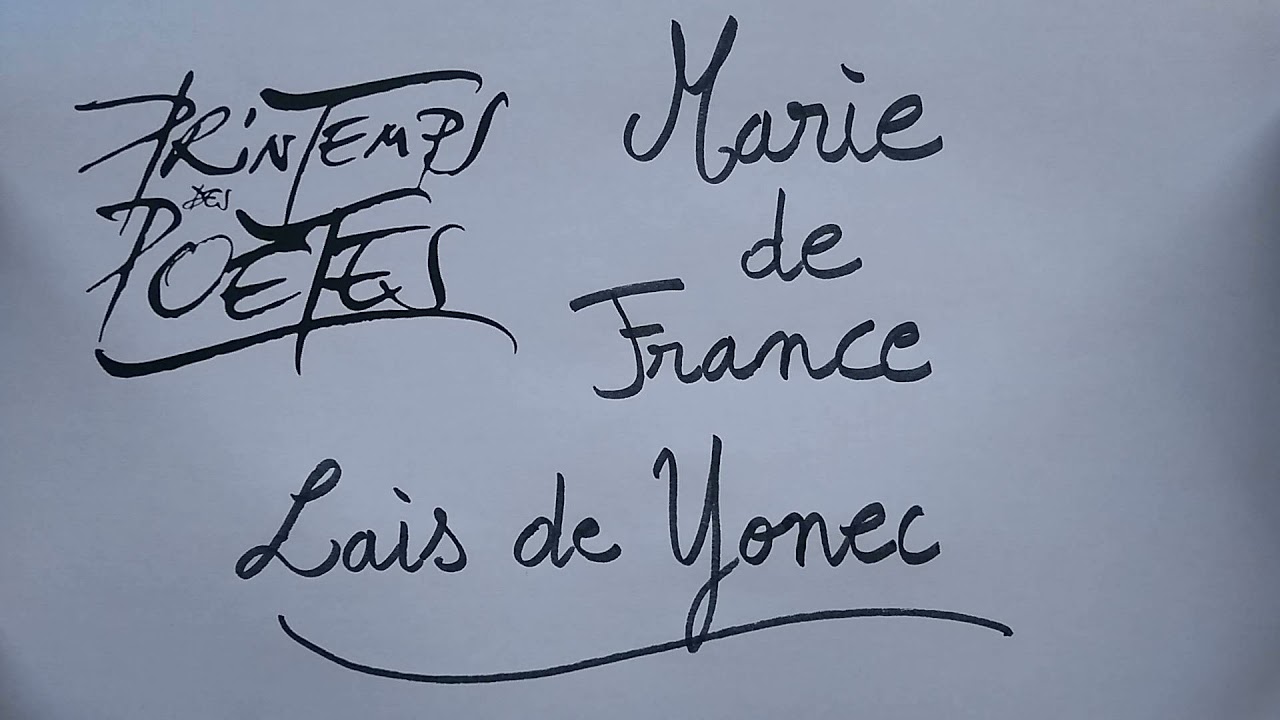 PRINTEMPS
DES
POÈTES
Marie
de
France
Lais de Yonec